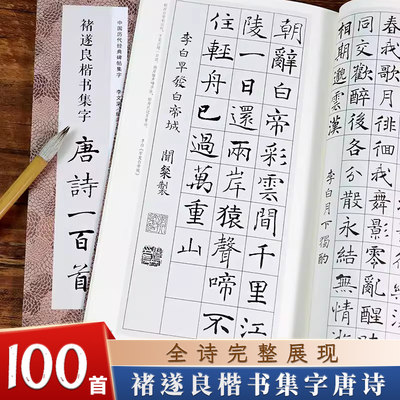 中国历代经典碑帖集字
褚遂良楷书集字
唐詩一百首
同交歡醉後各分散永結無情
相期邈雲漢
李白月下獨酌
朝辭白帝彩雲間千里江
陵一日還兩岸猿聲啼不
住輕舟已過萬重山
李白早發白帝城
全诗完整展现
100首
褚遂良楷书集字唐诗